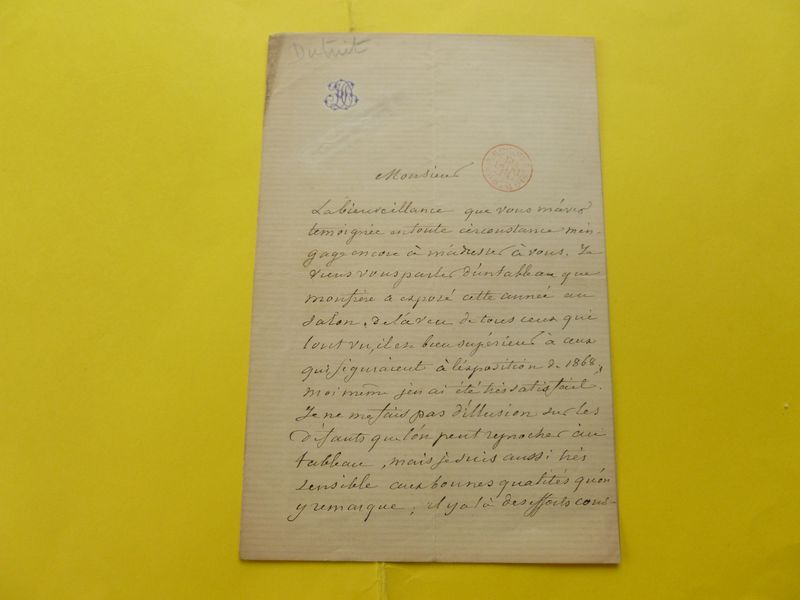 Dutuit
Monsieur
La bienveillance que vous m'avez
témoignée en toute circonstance m'en-
gage encore à m'adresser à vous. Je
viens vous parler d'un tableau que
mon frère a exposé cette année au
Salon. De l'aveu de tous ceux qui
l'ont vu, il est bien supérieur à ceux
qui figuraient à l'exposition de 1868;
moi même j'en ai été très satisfait.
Je ne me fais pas d'illusion sur les
défauts que l'on peut reprocher à ce
tableau, mais je suis aussi très
sensible aux bonnes qualités qu'on
y remarque; il y a là des efforts cons-